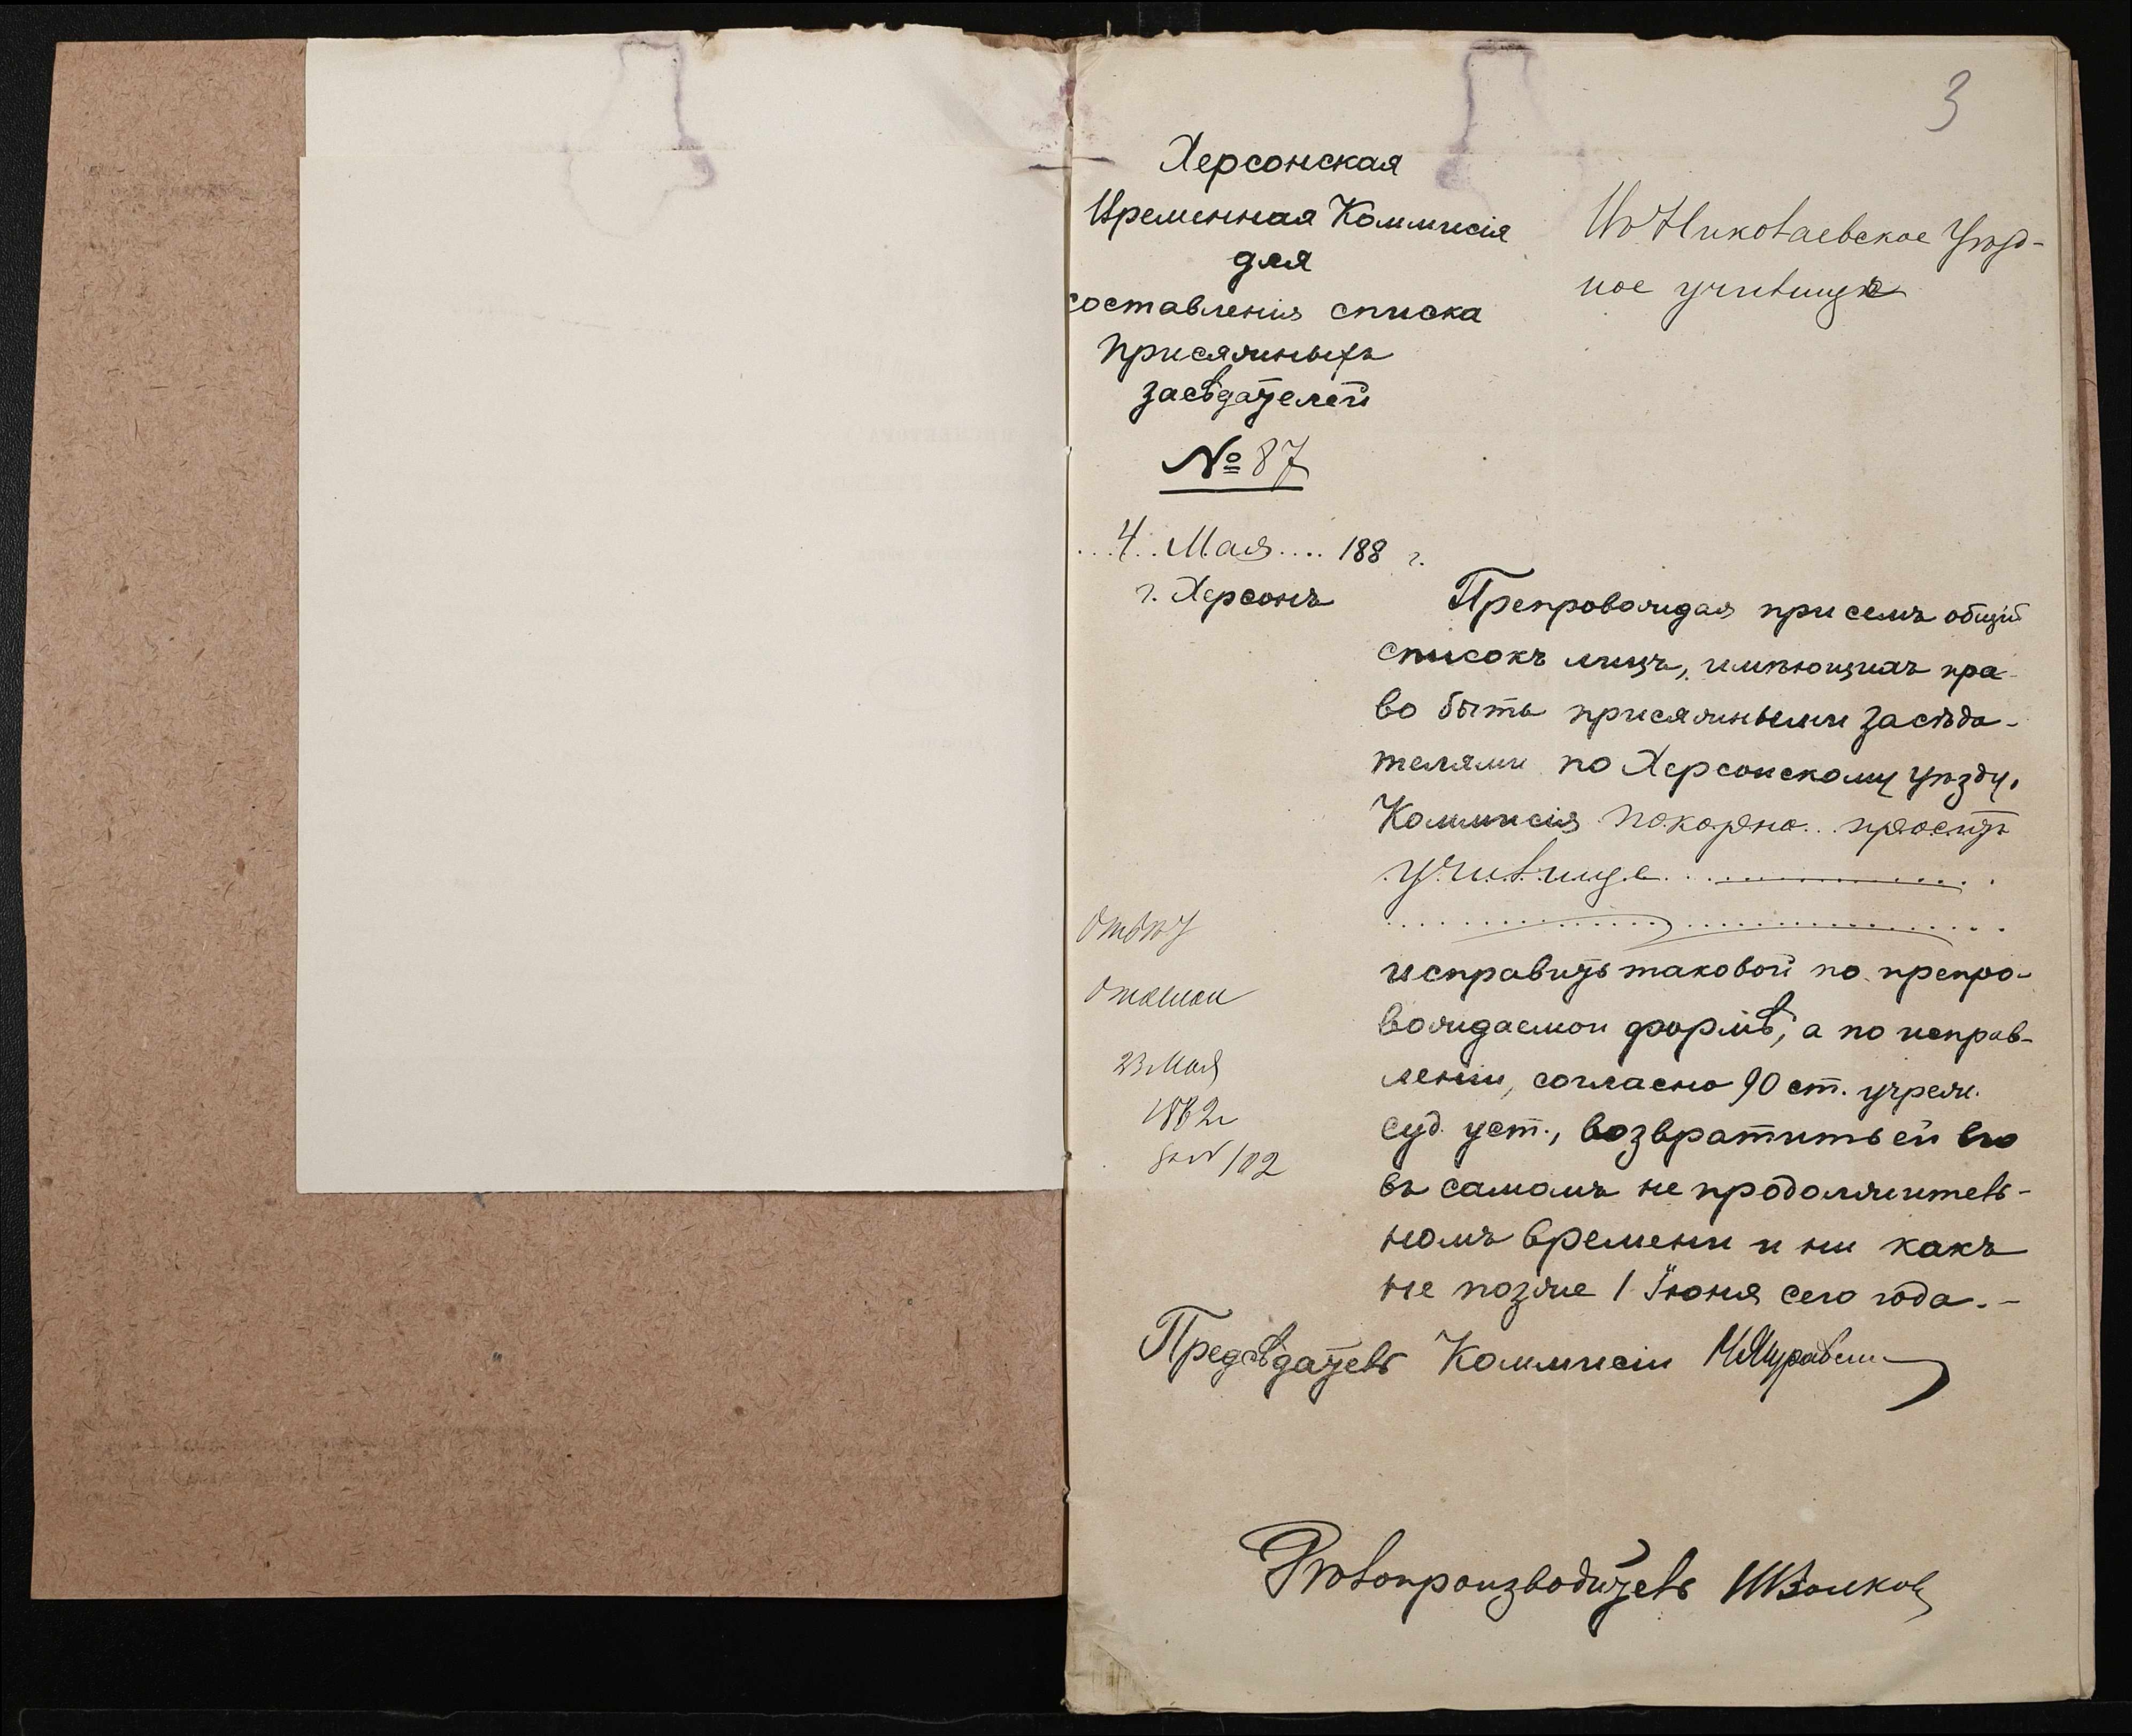 3
Херсонская
Временная Коммисія
для
составленія списка
присяжныхъ
засѣдателей
№ 87
4 Мая 188 г.
г. Херсонъ
Въ Николаевское Уѣзд-
ное училище
Препровождая при семъ общій
списокъ лицъ, имѣющихъ пра-
во быть присяжными засѣда-
телями по Херсонскому уѣзду,
Коммисія покорно проситъ
училище
исправить таковой по препро-
вождаемой формѣ, а по исправ-
леніи, согласно 90 ст. учреж.
суд. уст., возвратить ей его
въ самомъ не продолжитель-
номъ времени и ни какъ
не позже 1 Іюня сего года.-
Отвѣт
23 Мая
1882
за № 102
Предсѣдатель Коммисіи
Дѣлопроизводитель Волковъ